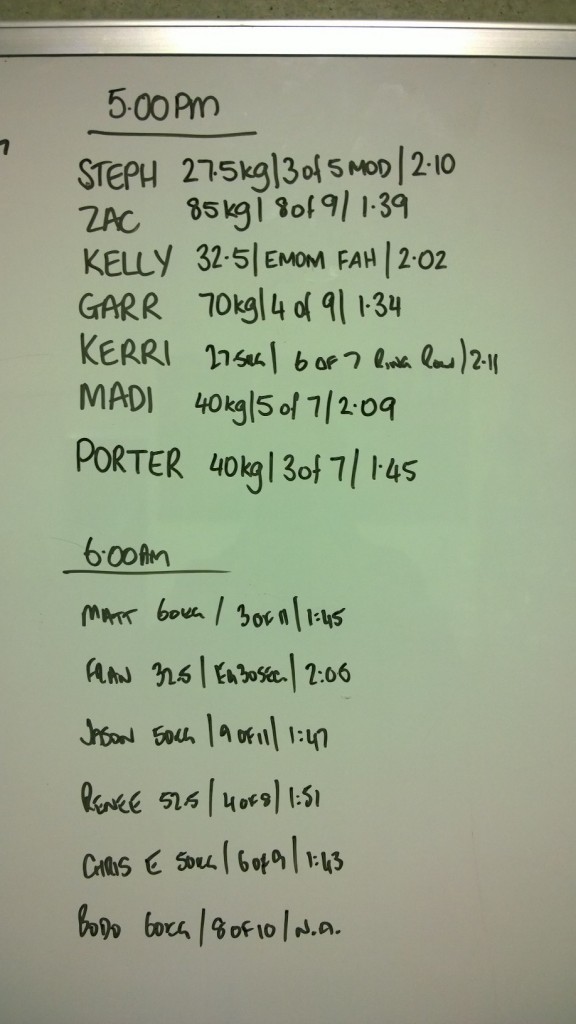 5.00PM
STEPH 27.5kg|3of 5 MOD|2.10
ZAC 85kg| 8of 9/ 1.39
KELLY 32.5|EMOM FAH|2.02
GARR 70kg|4 of 9| 1.34
KERRI 27.5KG| 6 OF 7 Ring Row|2.11
MADI 40kg|5 of 7/2.09
PORTER 40kg|3of 7/ 1.45
6.00AM
MATT 60KG / 3 OF 11|1:45
FRAN 32.5|EA 30SEC|2:06
JASON 50KG |9 OF 11| 1:47
RENEE 52.5|4 OF 8|1:51
CHRIS E 50KG|6 of 9|1:43
BODO 60KG/8 OF 10/N.A.